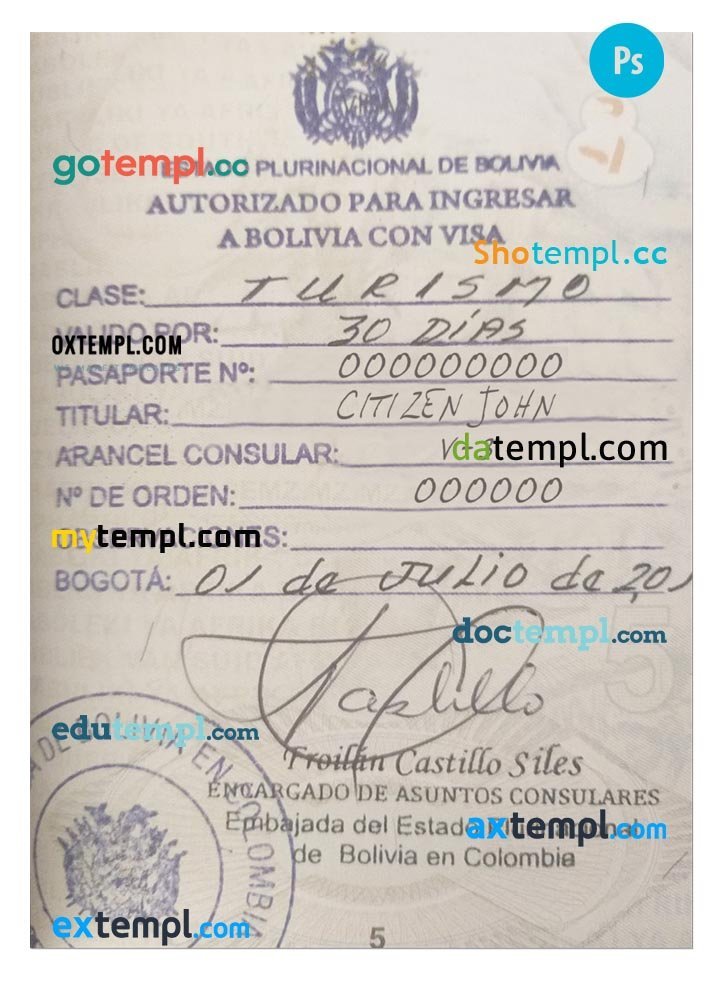 Ps
gotempl.cc PLURINACIONAL DE BOLIVIA
AUTORIZADO PARA INGRESAR
A BOLIVIA CON VISA
Shotempl.cc
CLASE: TURISMO
VALIDO POR: 30 DÍAS
OXTEMPL.COM
PASAPORTE Nº: 000000000
TITULAR: CITIZEN JOHN
ARANCEL CONSULAR:
datempl.com
Nº DE ORDEN: 000000
OBSERVACIONES:
mytempl.com
BOGOTÁ: 01 de JULIO de 201
doctempl.com
edutempl.com
Troilán Castillo Siles
ENCARGADO DE ASUNTOS CONSULARES
Embajada del Estado Plurinacional
axtempl.com
de Bolivia en Colombia
DE BOLIVIA EN COLOMBIA
extempl.com
5